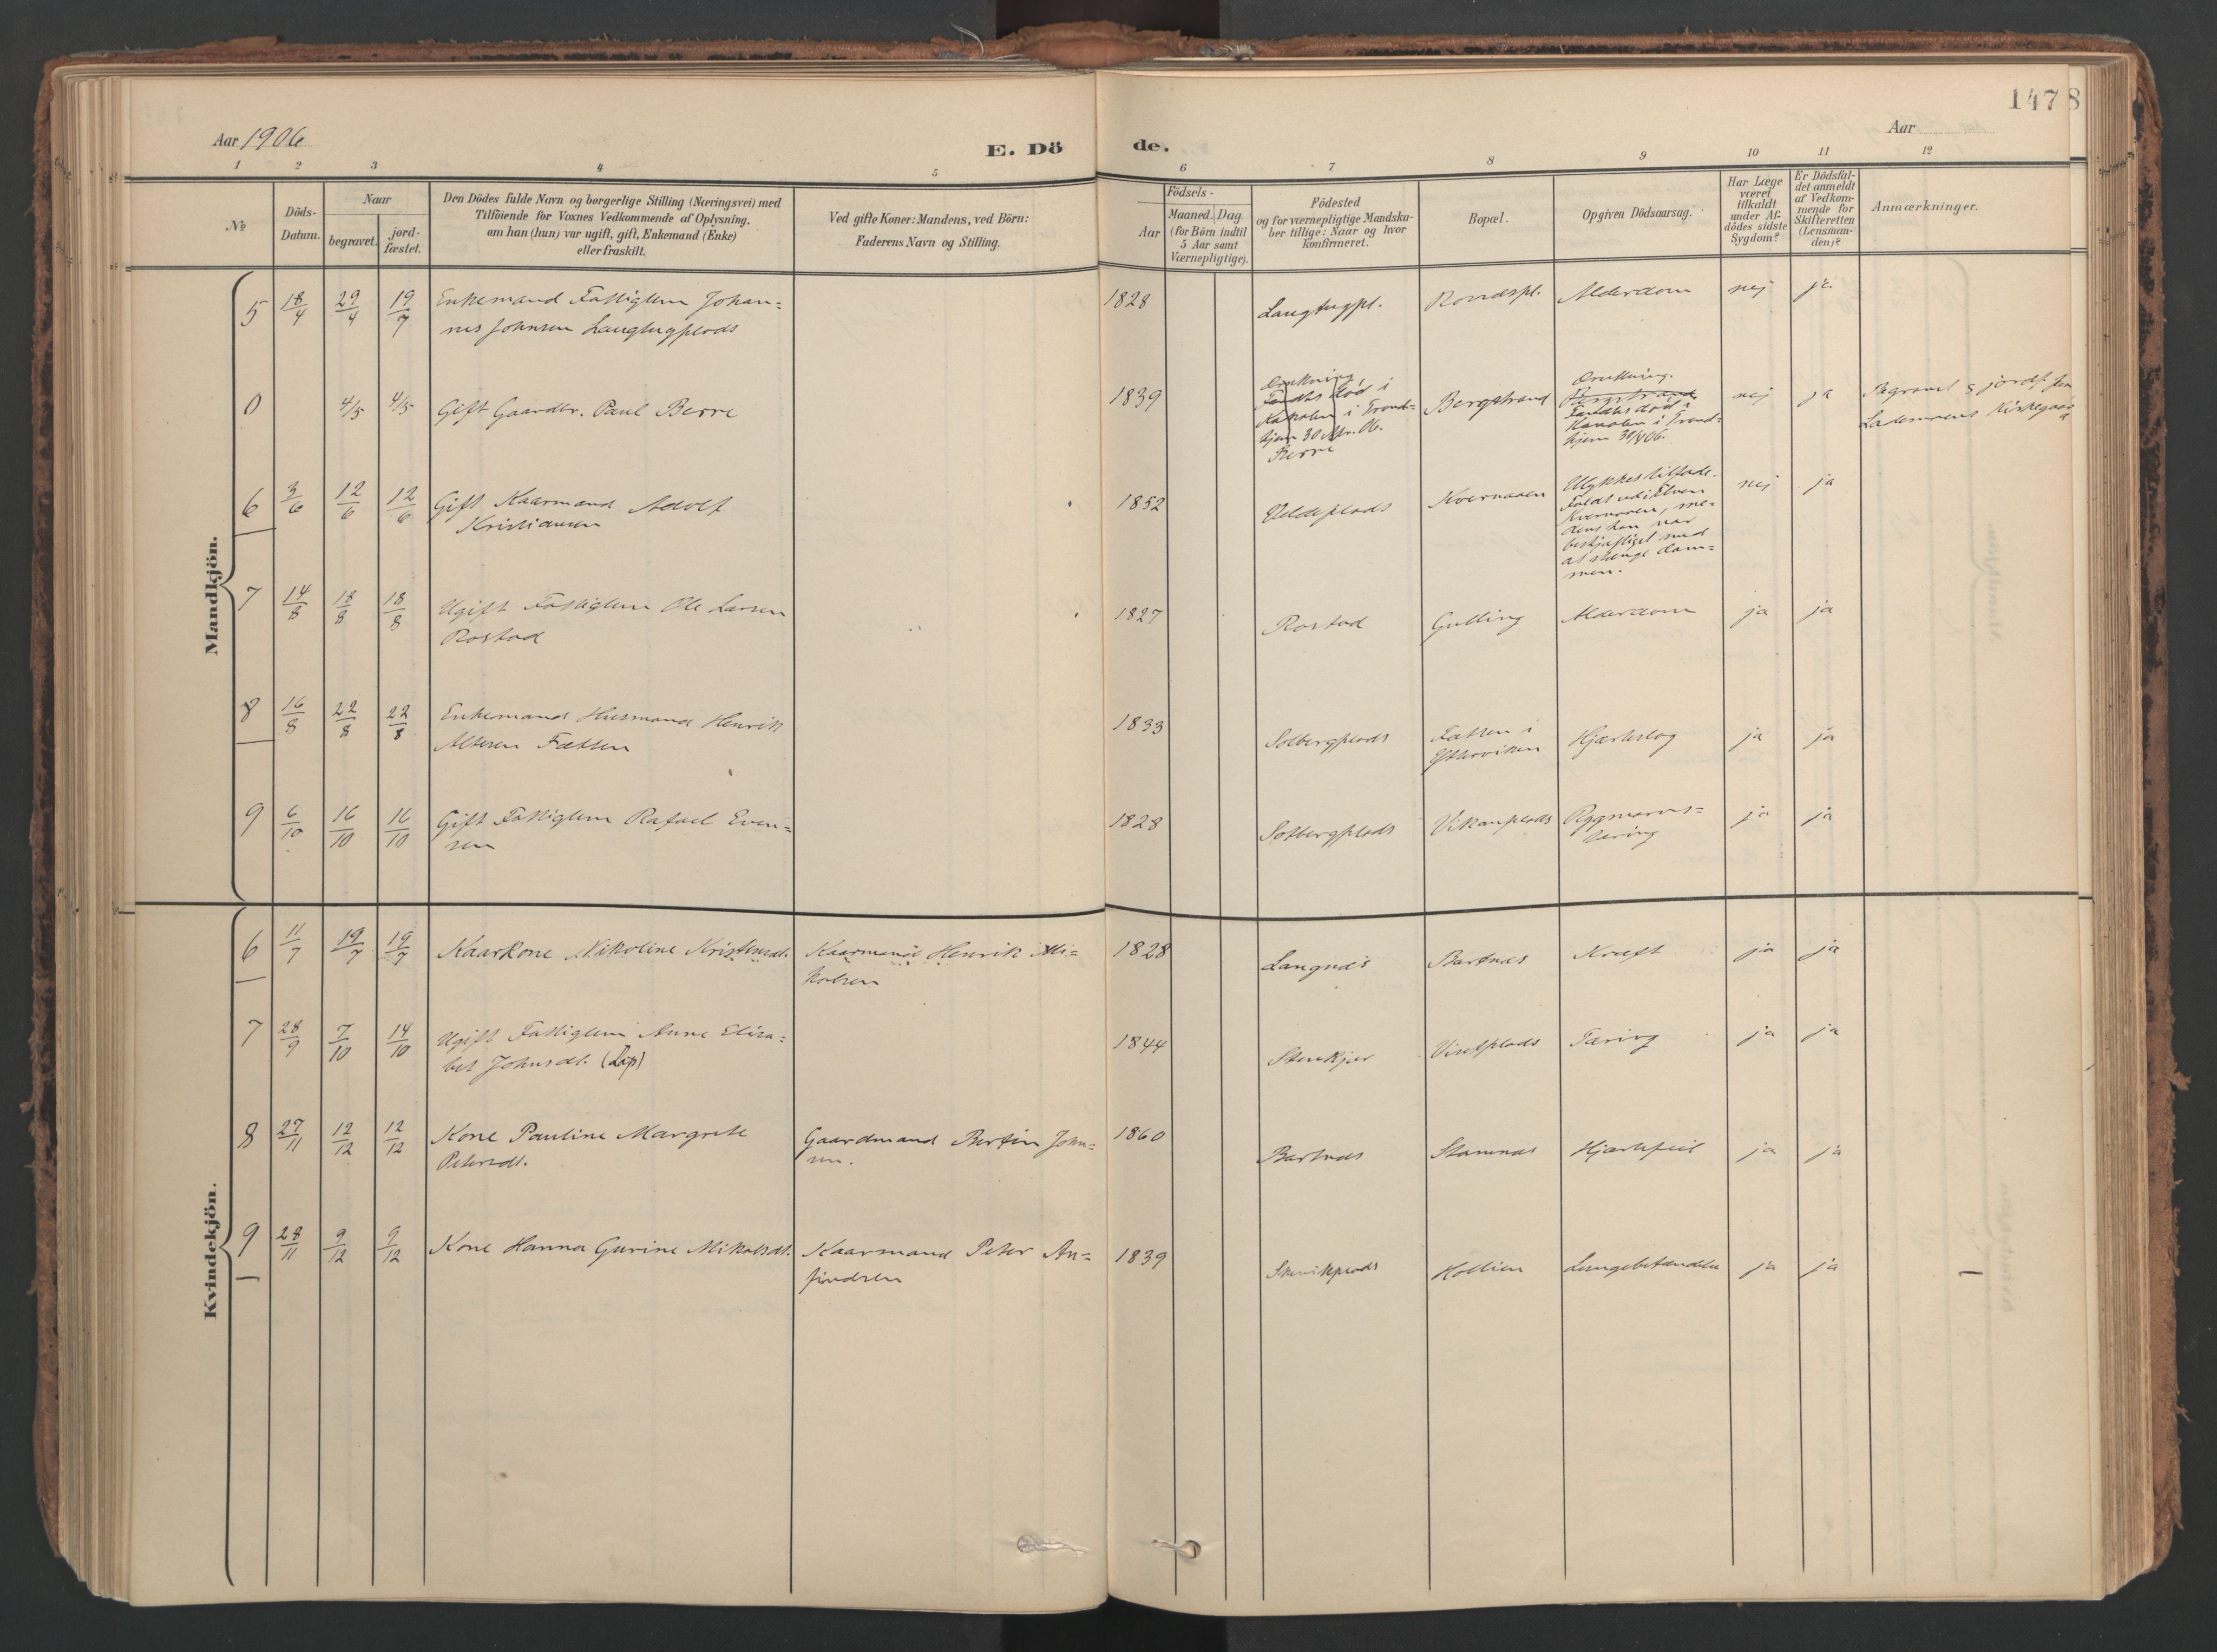 1478
Aar 1906
E. Dö
de.
Aar
1 2 3 4 5
6 7 8 9 10 11 12
№
Döds-
Datum.
Naar
begravet.
jord-
fæstet.
Den Dödes fulde Navn og borgerlige Stilling (Næringsvei) med
Tilföiende for Voxnes Vedkommende af Oplysning,
om han (hun) var ugift, gift, Enkemand (Enke)
eller fraskilt.
Ved gifte Koner: Mandens, ved Börn:
Faderens Navn og Stilling.
Födsels-
Aar
Maaned. Dag.
(for Börn indtil
5 Aar samt
Værnepligtige).
Födested
og for værnepligtige Mandska-
ber tillige: Naar og hvor
konfirmeret.
Bopæl.
Opgiven Dödsaarsag.
Har Læge
været
tilkaldt
under Af-
dödes sidste
Sygdom?
Er Dödsfal-
det anmeldt
af Vedkom-
mende for
Skifteretten
(Lensman-
den)?
Anmærkninger.
Mandkjön.
5 18/4 29/4 19/7 Enkemand Fattiglem Johan=
nes Johnsen Langtugplads
1828 Langtugpl. Alderdom nej ja
0 4/5 4/5 Gift Gaardbr. Paul Berre
1839
Drukning,
Fandtes död i
Kanalen i Trond-
hjem 30 Apr. 06.
Berre
Bergstrand
Drukning.
Bergstrand
Fandtes död i
Kanalen i Trond-
hjem 30/4 06.
nej ja
Begravet & jordf. paa
Lademoens Kirkegaard
6 3/6 12/6 12/6 Gift Kaarmand Adolf
Kristiansen
1852 Veldeplads Kvernaaen
Ulykkestilfælde.
Faldt ud i Elven
Kvernaaen, me-
dens han var
beskjæftiget med
at stænge Dam=
men.
nej ja
7 14/8 18/8 18/8 Ugift Fattiglem Ole Larsen
Rostad
1827 Rostad Gulling Alderdom ja ja
8 16/8 22/8 22/8 Enkemand Husmand Henrik
Altesen Fætten
1833 Solbergplads Fætten i
Hjærteslag ja ja
9 6/10 16/10 16/10 Gift Fattiglem Rafael Even=
sen
1828 Solbergplads Vikanplads Rygmarvs=
tæring
ja ja
Kvindekjön.
6 11/7 19/7 19/7 Kaarkone Nikoline Kristensdt. Kaarmand Henrik Mi=
kalsen
1828 Langnæs Bartnæs Kræft ja ja
7 28/9 7/10 14/10 Ugift Fattiglem Anne Elisa=
bet Johnsdt. (Lap)
1844 Stenkjær Visetplads Tæring ja ja
8 27/11 12/12 12/12 Kone Pauline Margrete
Petersdt.
Gaardmand Bertin John=
sen.
1860 Bartnæs Stamnæs Hjærtefeil ja ja
9 28/11 9/12 9/12 Kone Hanna Gurine Mikalsdt. Kaarmand Peter An=
findsen
1839 Hollien Lungebetændelse ja ja
—